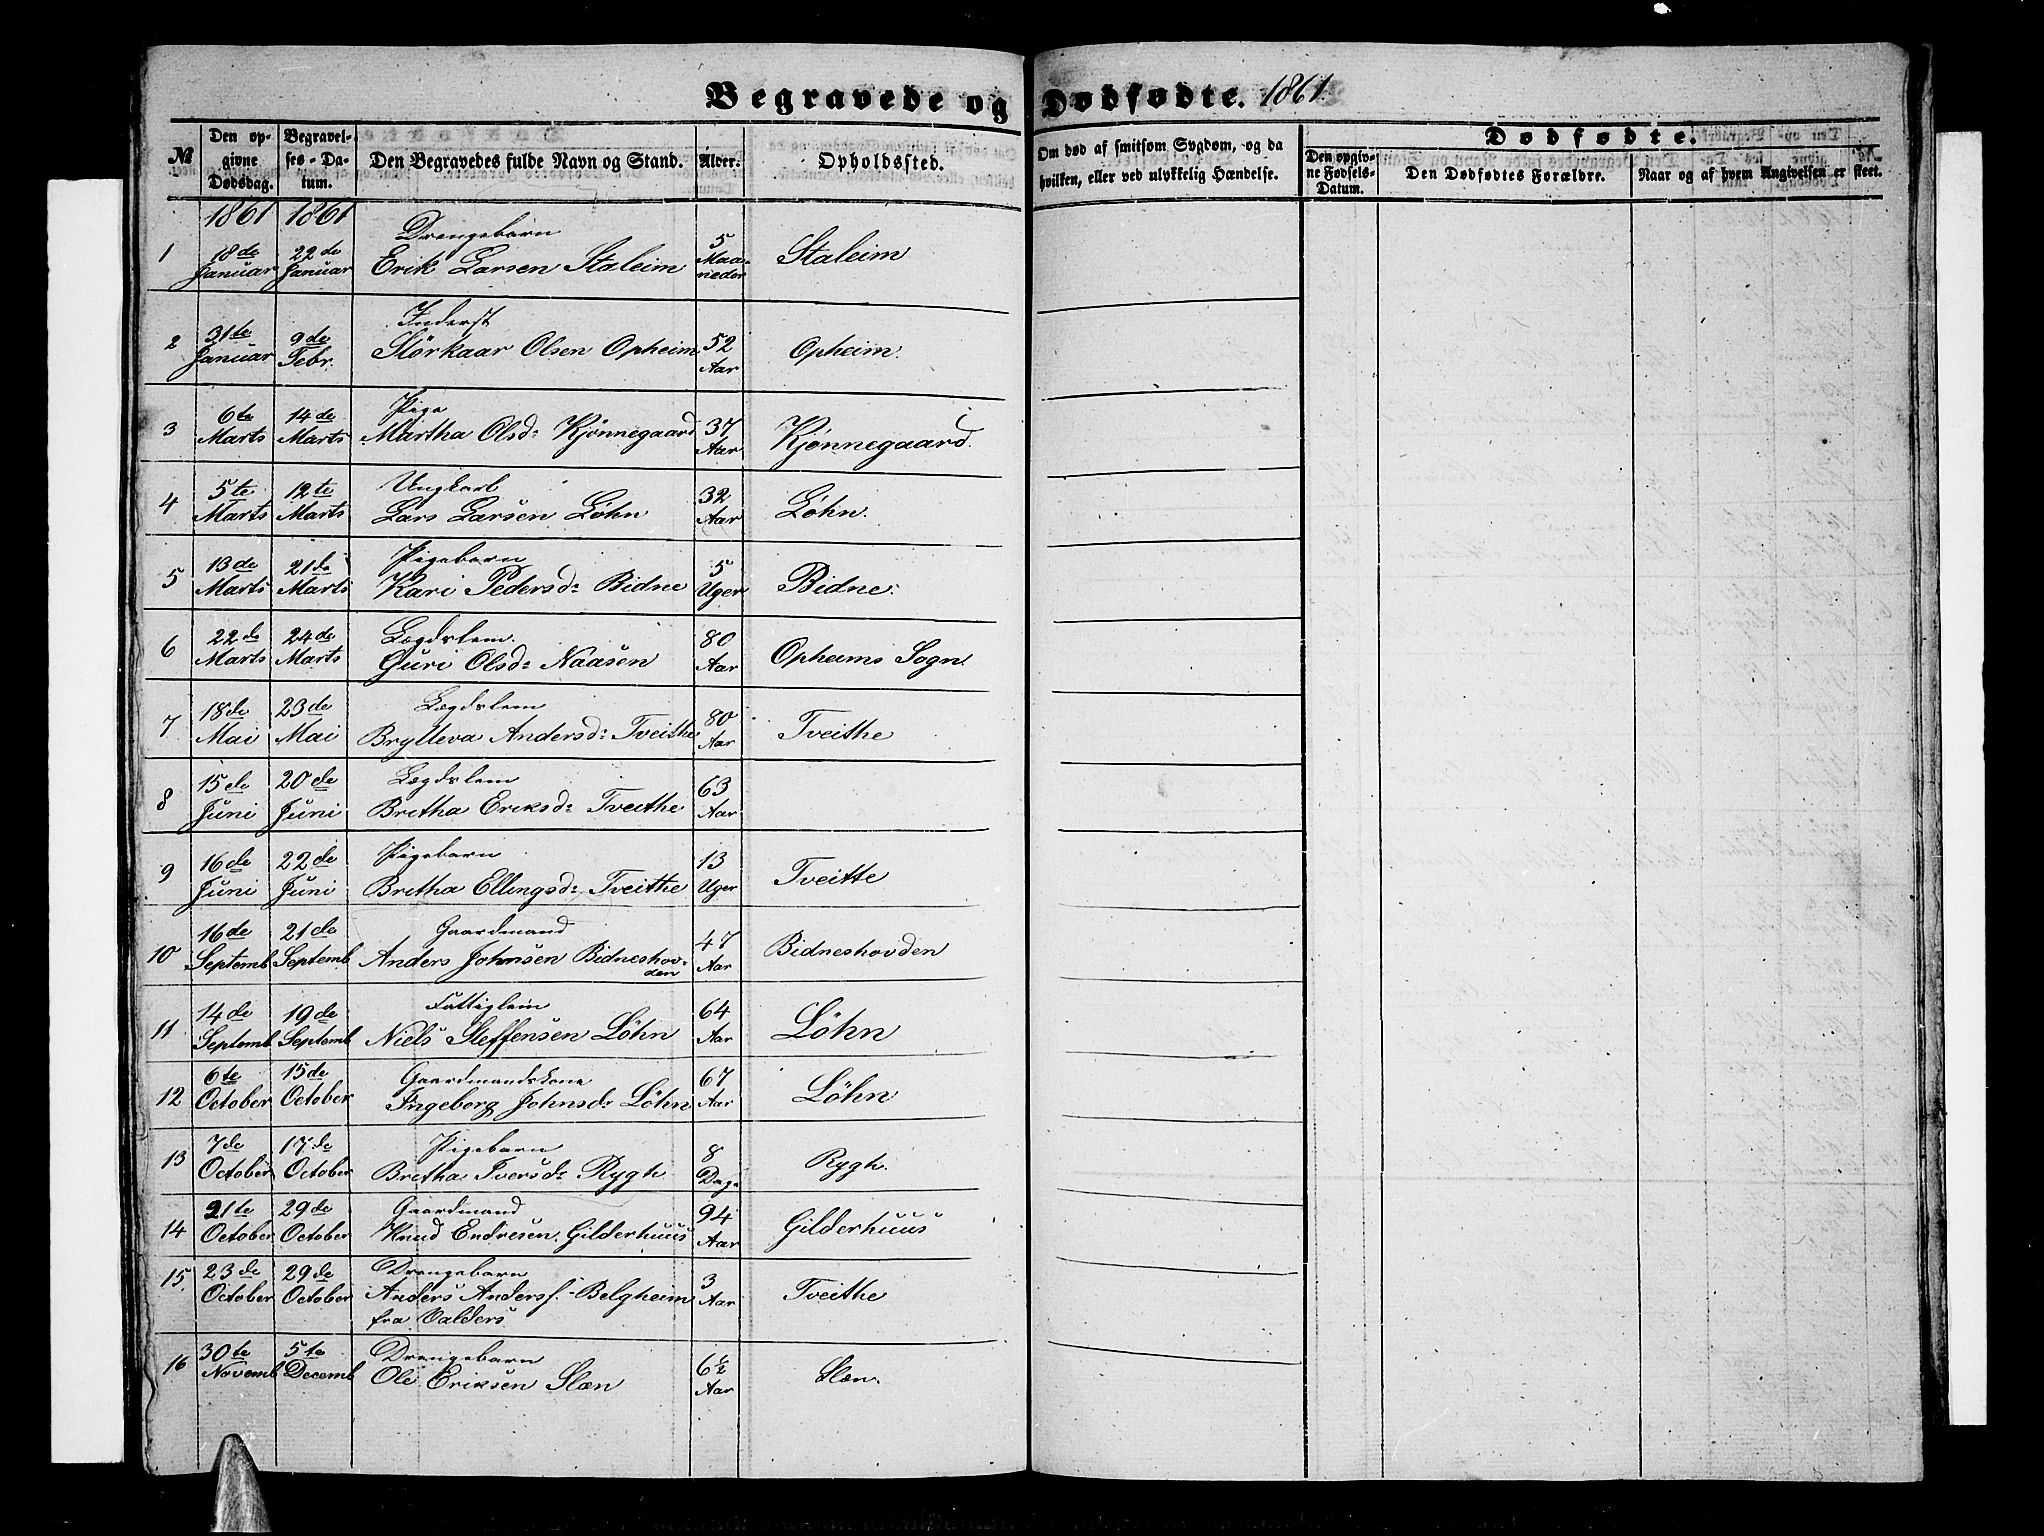 Begravede og Dødfødte. 1861.
№
Den opgivne Dødsdag.
Begravelses-Datum.
Den Begravedes fulde Navn og Stand.
Alder.
Opholdssted.
Om død af smitsom Sygdom, og da hvilken, eller ved ulykkelig Hændelse.
Dødfødte.
Den opgivne Fødsels-Datum.
Den Dødfødtes Forældre.
Naar og af hvem Angivelsen er skeet.
1861 1861
1 18de Januar 22de Januar Drengebarn Erik Larsen Staleim 5 Maaneder Staleim
2 31te Januar 9de Febr. Inderst Störkaar Olsen Opheim 52 Aar Opheim.
3 6te Marts 14de Marts Pige Martha Olsd: Kjönnegaard 37 Aar Kjönnegaard.
4 5te Marts 12te Marts Ungkarl Lars Larsen Löhn 32 Aar Löhn.
5 13de Marts 21de Marts Pigebarn Kari Pedersd: Bidne 5 Uger Bidne.
6 22de Marts 24de Marts Lægdslem. Guri Olsd: Naasen 80 Aar Opheims Sogn.
7 18de Mai 23de Mai Lægdslem Brytteva Andersd: Tveithe 80 Aar Tveithe
8 15de Juni 20de Juni Lægdslem Bretha Eriksd: Tveithe 63 Aar
9 16de Juni 22de Juni Pigebarn Bretha Ellingsd: Tveithe 13 Uger Tveitte
10 16de Septemb. 21de Septemb. Gaardmand Anders Johnsen Bidneshovden 47 Aar Bidneshovden
11 14de Septemb. 19de Septemb. Fattiglem Niels Steffensen Löhn 64 Aar Löhn
12 6te October 15de October Gaardmandskone Ingeborg Johnsd: Löhn 67 Aar Löhn
13 7de October 17de October Pigebarn Bretha Iversd: Rygh 8 Dage Rygh.
14 21te October 29de October Gaardmand Knud Endresen Gilderhuus 94 Aar Gilderhuus
15 23de October 29de October Drengebarn Anders Andersf. Belgheim fra Valders 3 Aar Tveithe
16 30te Novemb. 5te Decemb. Drengebarn Ole Eriksen Slæn 6½ Aar Slæn.